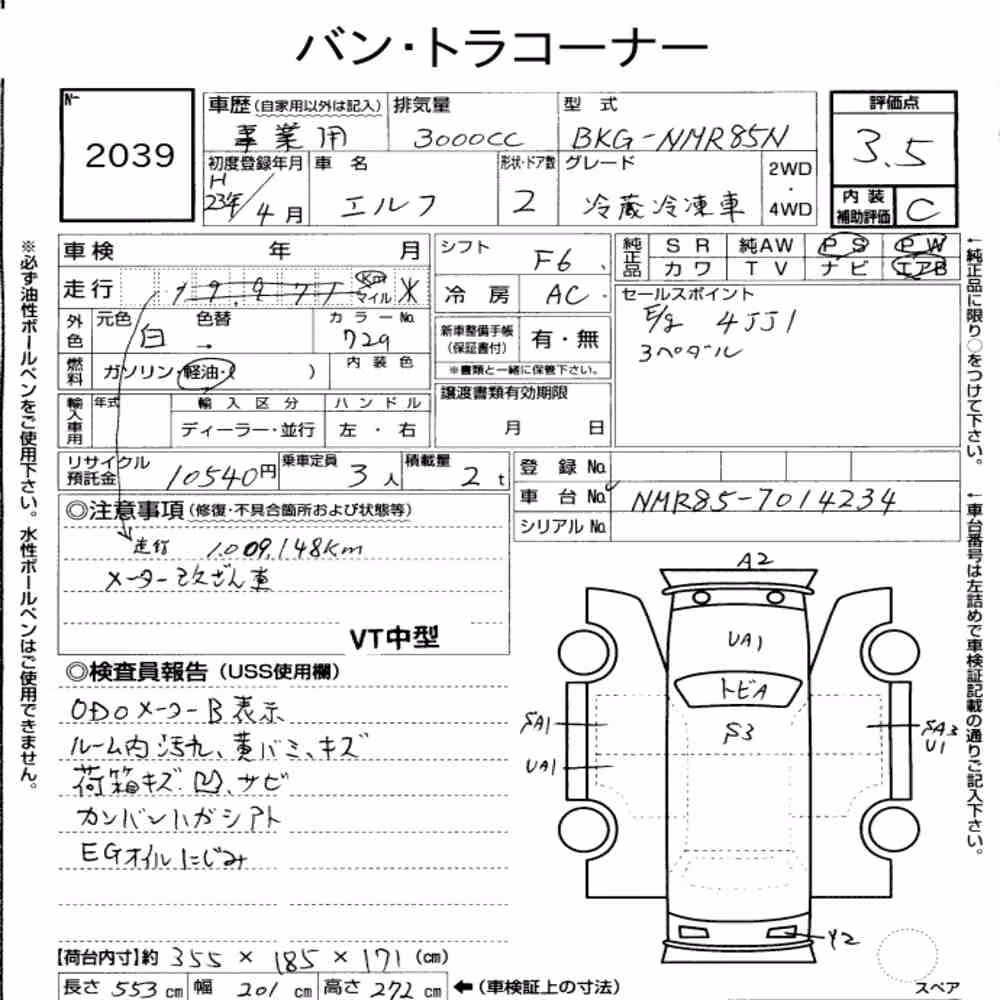 バン・トラコーナー
№
2039
車歴(自家用以外は記入) 排気量 型式
事業用 3000CC BKG-NMR85N
評価点
3.5
初度登録年月 車名 形状・ドア数 グレード 2WD・4WD
H23年/4月 エルフ 2 冷蔵冷凍車
内装補助評価 C
車検 年 月
シフト F6
純正品 SR 純AW PS PW
カワ TV ナビ エアB
走行 Km マイル ※
冷房 AC
セールスポイント
E/g 4JJ1
3ペダル
外色 元色 色替 カラーNo.
白 → 729
新車整備手帳(保証書付) 有・無
※書類と一緒に保管下さい。
燃料 ガソリン・軽油・( ) 内装色
譲渡書類有効期限
月 日
輸入車用 年式 輸入区分 ハンドル
ディーラー・並行 左・右
リサイクル預託金 10540円 乗車定員 3人 積載量 2t
登録No.
車台No. NMR85-7014234
シリアルNo.
◎注意事項(修復・不具合箇所および状態等)
走行 1,009,148Km
メーター改ざん車
VT中型
◎検査員報告(USS使用欄)
ODOメーターB表示
ルーム内汚れ、黄バミ、キズ
荷箱キズ、凹、サビ
カンバンハガシアト
EGオイルにじみ
A2
UA1
トビA
S3
SA1
UA1
SA3
U1
Y2
【荷台内寸】約 355 × 185 × 171 (cm)
長さ 553 cm 幅 201 cm 高さ 272 cm ←(車検証上の寸法)
スペア
※必ず油性ボールペンをご使用下さい。水性ボールペンはご使用できません。
←純正品に限り○をつけて下さい。
←車台番号は左詰めで車検証記載の通りご記入下さい。